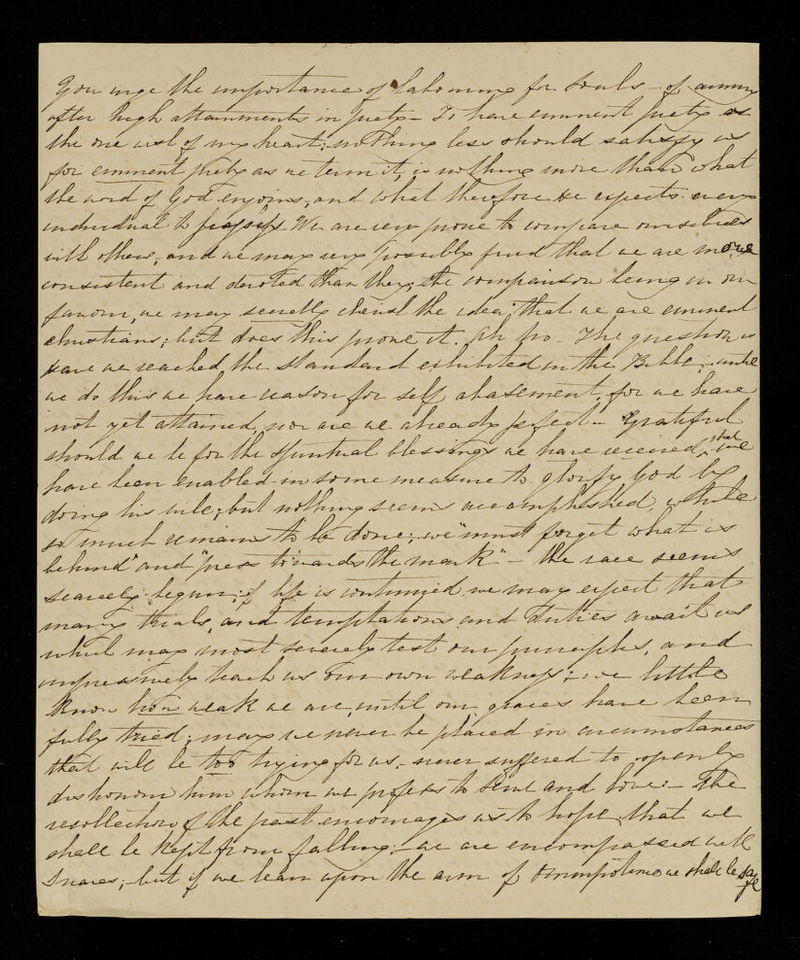 You urge the importance of labouring for souls - of aiming
after high attainments in piety - To have eminent piety is
the one wish of my heart; nothing less should satisfy us
for eminent piety as we term it, is nothing more than what
the word of God enjoins, and what therefore He expects every
individual to possess. We are very prone to compare ourselves
with others, and we may very possibly find that we are more
consistent and devoted than they, the comparison being in our
favour, we may secretly cherish the idea that we are eminent
christians; but does this prove it. Ah no - The question is
have we reached the standard exhibited in the Bible; until
we do this we have reason for self abasement, for we have
not yet attained, nor are we already perfect - Grateful
should we be for the spiritual blessings we have received, that we
have been enabled in some measure to glorify God by
doing his will; but nothing seems accomplished, while
so much remains to be done; we "must forget what is
behind" and "press towards the mark" - the race seems
scarcely begun; if life is continued we may expect that
many trials, and temptations and duties await us
which may most severely test our principles, and
impressively teach us our own weakness; we little
know how weak we are, until our graces have been
fully tried; may we never be placed in circumstances
that will be too trying for us, - never suffered to openly
dishonour him whom we profess to serve and love - The
recollection of the past encourages us to hope that we
shall be kept from falling; - we are encompassed with
snares; but if we lean upon the arm of Omnipotence we shall be safe